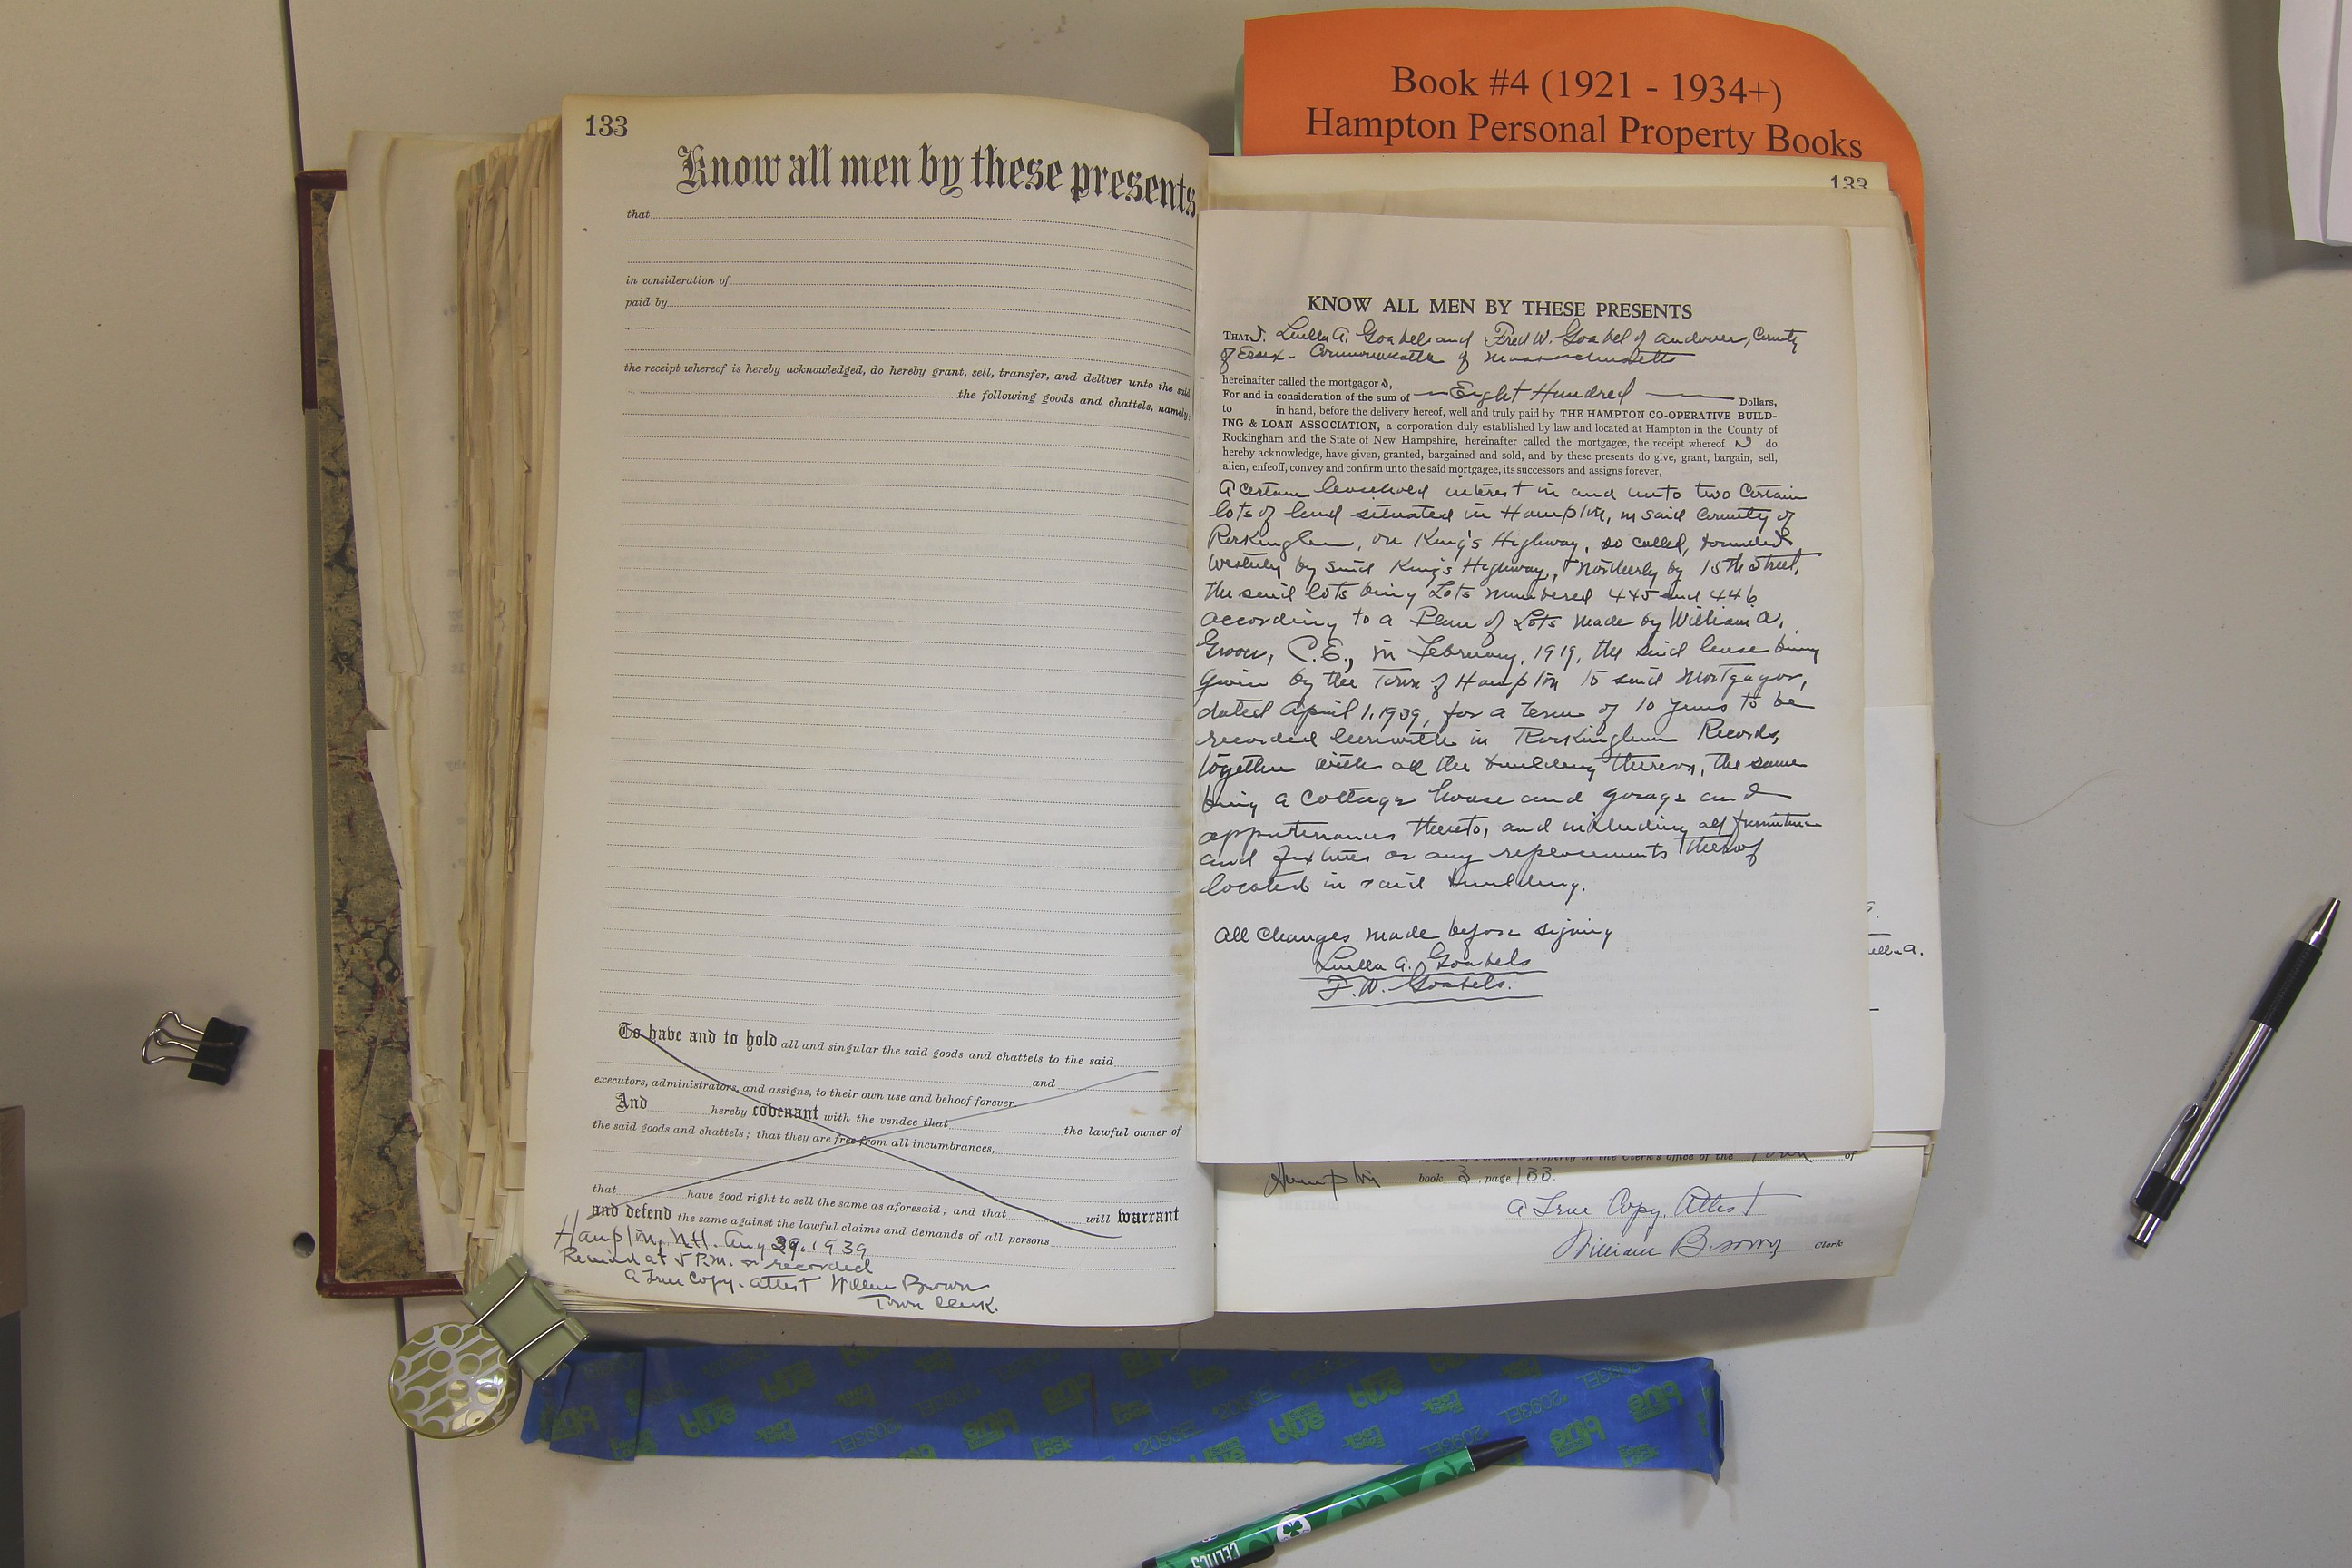 Book #4 (1921 - 1934+)
Hampton Personal Property Books
133
Know all men by these presents
that
in consideration of
paid by
the receipt whereof is hereby acknowledged, do hereby grant, sell, transfer, and deliver unto the said
the following goods and chattels, namely:
To have and to hold all and singular the said goods and chattels to the said
and
executors, administrators, and assigns, to their own use and behoof forever.
And hereby covenant with the vendee that the lawful owner of
the said goods and chattels; that they are free from all incumbrances,
that have good right to sell the same as aforesaid; and that will warrant
and defend the same against the lawful claims and demands of all persons
Hampton, N.H. Aug 29, 1939
Received at 5 P.M. & recorded
A True Copy. Attest William Brown
Town Clerk.
133
KNOW ALL MEN BY THESE PRESENTS
THAT Luella A. Goabels and Fred W. Goabel of Andover, County
of Essex - Commonwealth of Massachusetts
hereinafter called the mortgagor s,
For and in consideration of the sum of — Eight Hundred — Dollars,
to in hand, before the delivery hereof, well and truly paid by THE HAMPTON CO-OPERATIVE BUILD-
ING & LOAN ASSOCIATION, a corporation duly established by law and located at Hampton in the County of
Rockingham and the State of New Hampshire, hereinafter called the mortgagee, the receipt whereof do
hereby acknowledge, have given, granted, bargained and sold, and by these presents do give, grant, bargain, sell,
alien, enfeoff, convey and confirm unto the said mortgagee, its successors and assigns forever,
A certain leasehold interest in and unto two certain
lots of land situated in Hampton, in said County of
Rockingham, on King's Highway, so called, bounded
Westerly by said King's Highway, Northerly by 15th Street,
the said lots being Lots numbered 445 and 446
according to a Plan of Lots made by William A.
Grover, C.E., in February, 1919, the said lease being
given by the Town of Hampton to said Mortgagor,
dated April 1, 1939, for a term of 10 years to be
recorded herewith in Rockingham Records,
together with all the building thereon, the same
being a cottage house and garage and
appurtenances thereto, and including all furniture
and fixtures or any replacements thereof
located in said building.
All changes made before signing
Luella A. Goabels
F. W. Goabels.
ella A.
Personal Property in the Clerk's office of the Town of
Hampton book 3, page 133.
A True Copy. Attest
William Brown Clerk
CELTICS